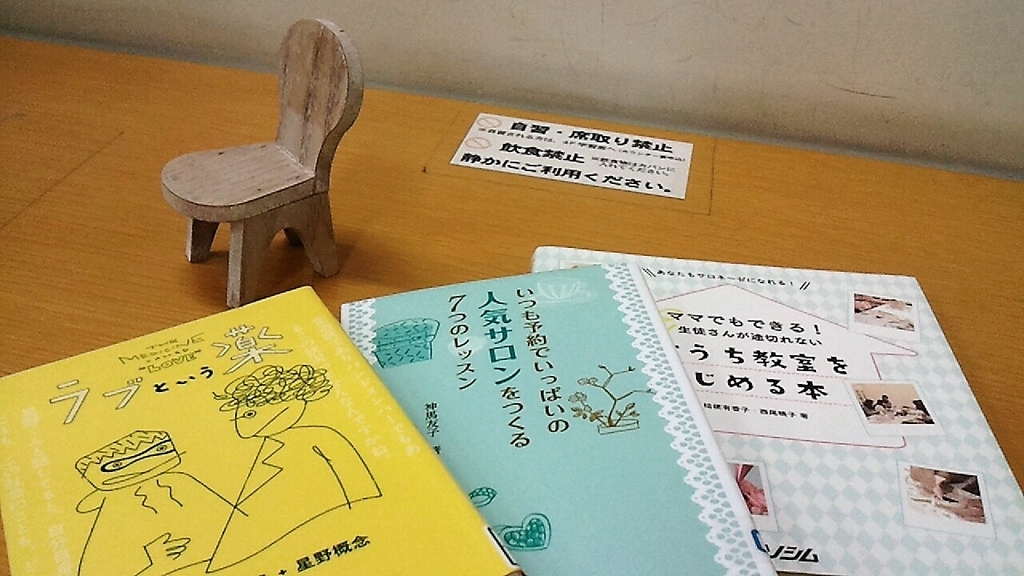 自習・席取り禁止
飲食禁止
静かにご利用ください。
THE
MEDICINE
CALLED
"LOVE"
ラブという薬
星野概念
いつも予約でいっぱいの
人気サロンをつくる
7つのレッスン
神鳥友子
あなたもサロネーゼになれる!
ママでもできる!
生徒さんが途切れない
うち教室を
じめる本
西尾暁子 著
ソシム